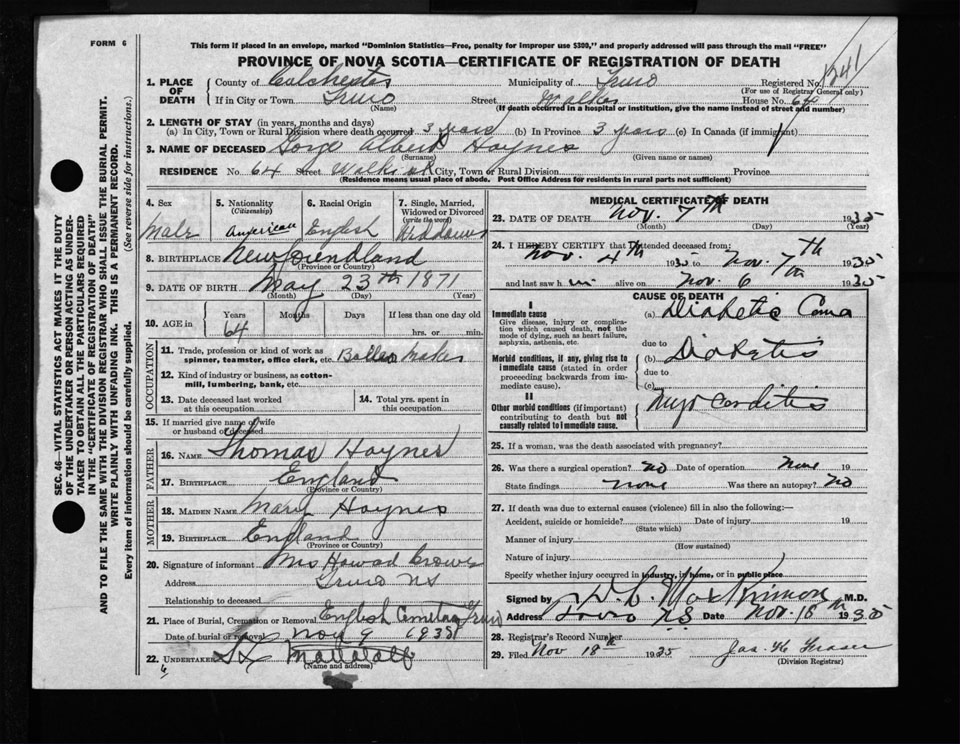 FORM 6
This form if placed in an envelope, marked "Dominion Statistics—Free, penalty for improper use $300," and properly addressed will pass through the mail "FREE"
PROVINCE OF NOVA SCOTIA—CERTIFICATE OF REGISTRATION OF DEATH
1. PLACE OF DEATH County of Colchester Municipality of Truro Registered No. 1241
(For use of Registrar General only)
If in City or Town Truro Street Walker House No. 64
(Name) (If death occurred in a hospital or institution, give the name instead of street and number)
2. LENGTH OF STAY (in years, months and days)
(a) In City, Town or Rural Division where death occurred 3 years (b) In Province 3 years (c) In Canada (if immigrant)
3. NAME OF DECEASED George Albert Haynes
(Surname) (Given name or names)
RESIDENCE No. 64 Street Walker St City, Town or Rural Division Province
(Residence means usual place of abode. Post Office Address for residents in rural parts not sufficient)
4. Sex Male
5. Nationality (Citizenship) American
6. Racial Origin English
7. Single, Married, Widowed or Divorced (write the word)
8. BIRTHPLACE Newfoundland
(Province or Country)
9. DATE OF BIRTH May 23th 1871
(Month) (Day) (Year)
10. AGE in Years 64 Months Days If less than one day old hrs. or min.
OCCUPATION
11. Trade, profession or kind of work as spinner, teamster, office clerk, etc. Boiler Maker
12. Kind of industry or business, as cotton-mill, lumbering, bank, etc.
13. Date deceased last worked at this occupation
14. Total yrs. spent in this occupation
15. If married give name of wife or husband of deceased
FATHER
16. NAME Thomas Haynes
17. BIRTHPLACE England
(Province or Country)
MOTHER
18. MAIDEN NAME Mary Haynes
19. BIRTHPLACE England
(Province or Country)
20. Signature of informant Mrs Howard
Address Truro NS
Relationship to deceased
21. Place of Burial, Cremation or Removal English Cemetery Truro
Date of burial or removal Nov 9 1935
22. UNDERTAKER
(Name and address)
MEDICAL CERTIFICATE OF DEATH
23. DATE OF DEATH Nov. 7th 1935
(Month) (Day) (Year)
24. I HEREBY CERTIFY that I attended deceased from:
Nov. 4th 1935 to Nov. 7th 1935
and last saw him alive on Nov. 6 1935
CAUSE OF DEATH
I
Immediate cause
Give disease, injury or complication which caused death, not the mode of dying, such as heart failure, asphyxia, asthenia, etc.
(a) Diabetis Coma
due to
Morbid conditions, if any, giving rise to immediate cause (stated in order proceeding backwards from immediate cause).
(b) Diabetis
due to
(c)
II
Other morbid conditions (if important) contributing to death but not causally related to immediate cause.
Myo Carditis
25. If a woman, was the death associated with pregnancy?
26. Was there a surgical operation? No Date of operation None 19
State findings None Was there an autopsy? No
27. If death was due to external causes (violence) fill in also the following:—
Accident, suicide or homicide? Date of injury 19
(State which)
Manner of injury
(How sustained)
Nature of injury
Specify whether injury occurred in industry, in home, or in public place
Signed by M.D.
Address Truro N.S. Date Nov. 18th 1935
28. Registrar's Record Number
29. Filed Nov 18th 1935 Jas. H. Fraser
(Division Registrar)
SEC. 46—VITAL STATISTICS ACT MAKES IT THE DUTY
OF THE UNDERTAKER OR PERSON ACTING AS UNDER-
TAKER TO OBTAIN ALL THE PARTICULARS REQUIRED
IN THE "CERTIFICATE OF REGISTRATION OF DEATH"
AND TO FILE THE SAME WITH THE DIVISION REGISTRAR WHO SHALL ISSUE THE BURIAL PERMIT.
WRITE PLAINLY WITH UNFADING INK. THIS IS A PERMANENT RECORD.
Every item of information should be carefully supplied. (See reverse side for instructions.)